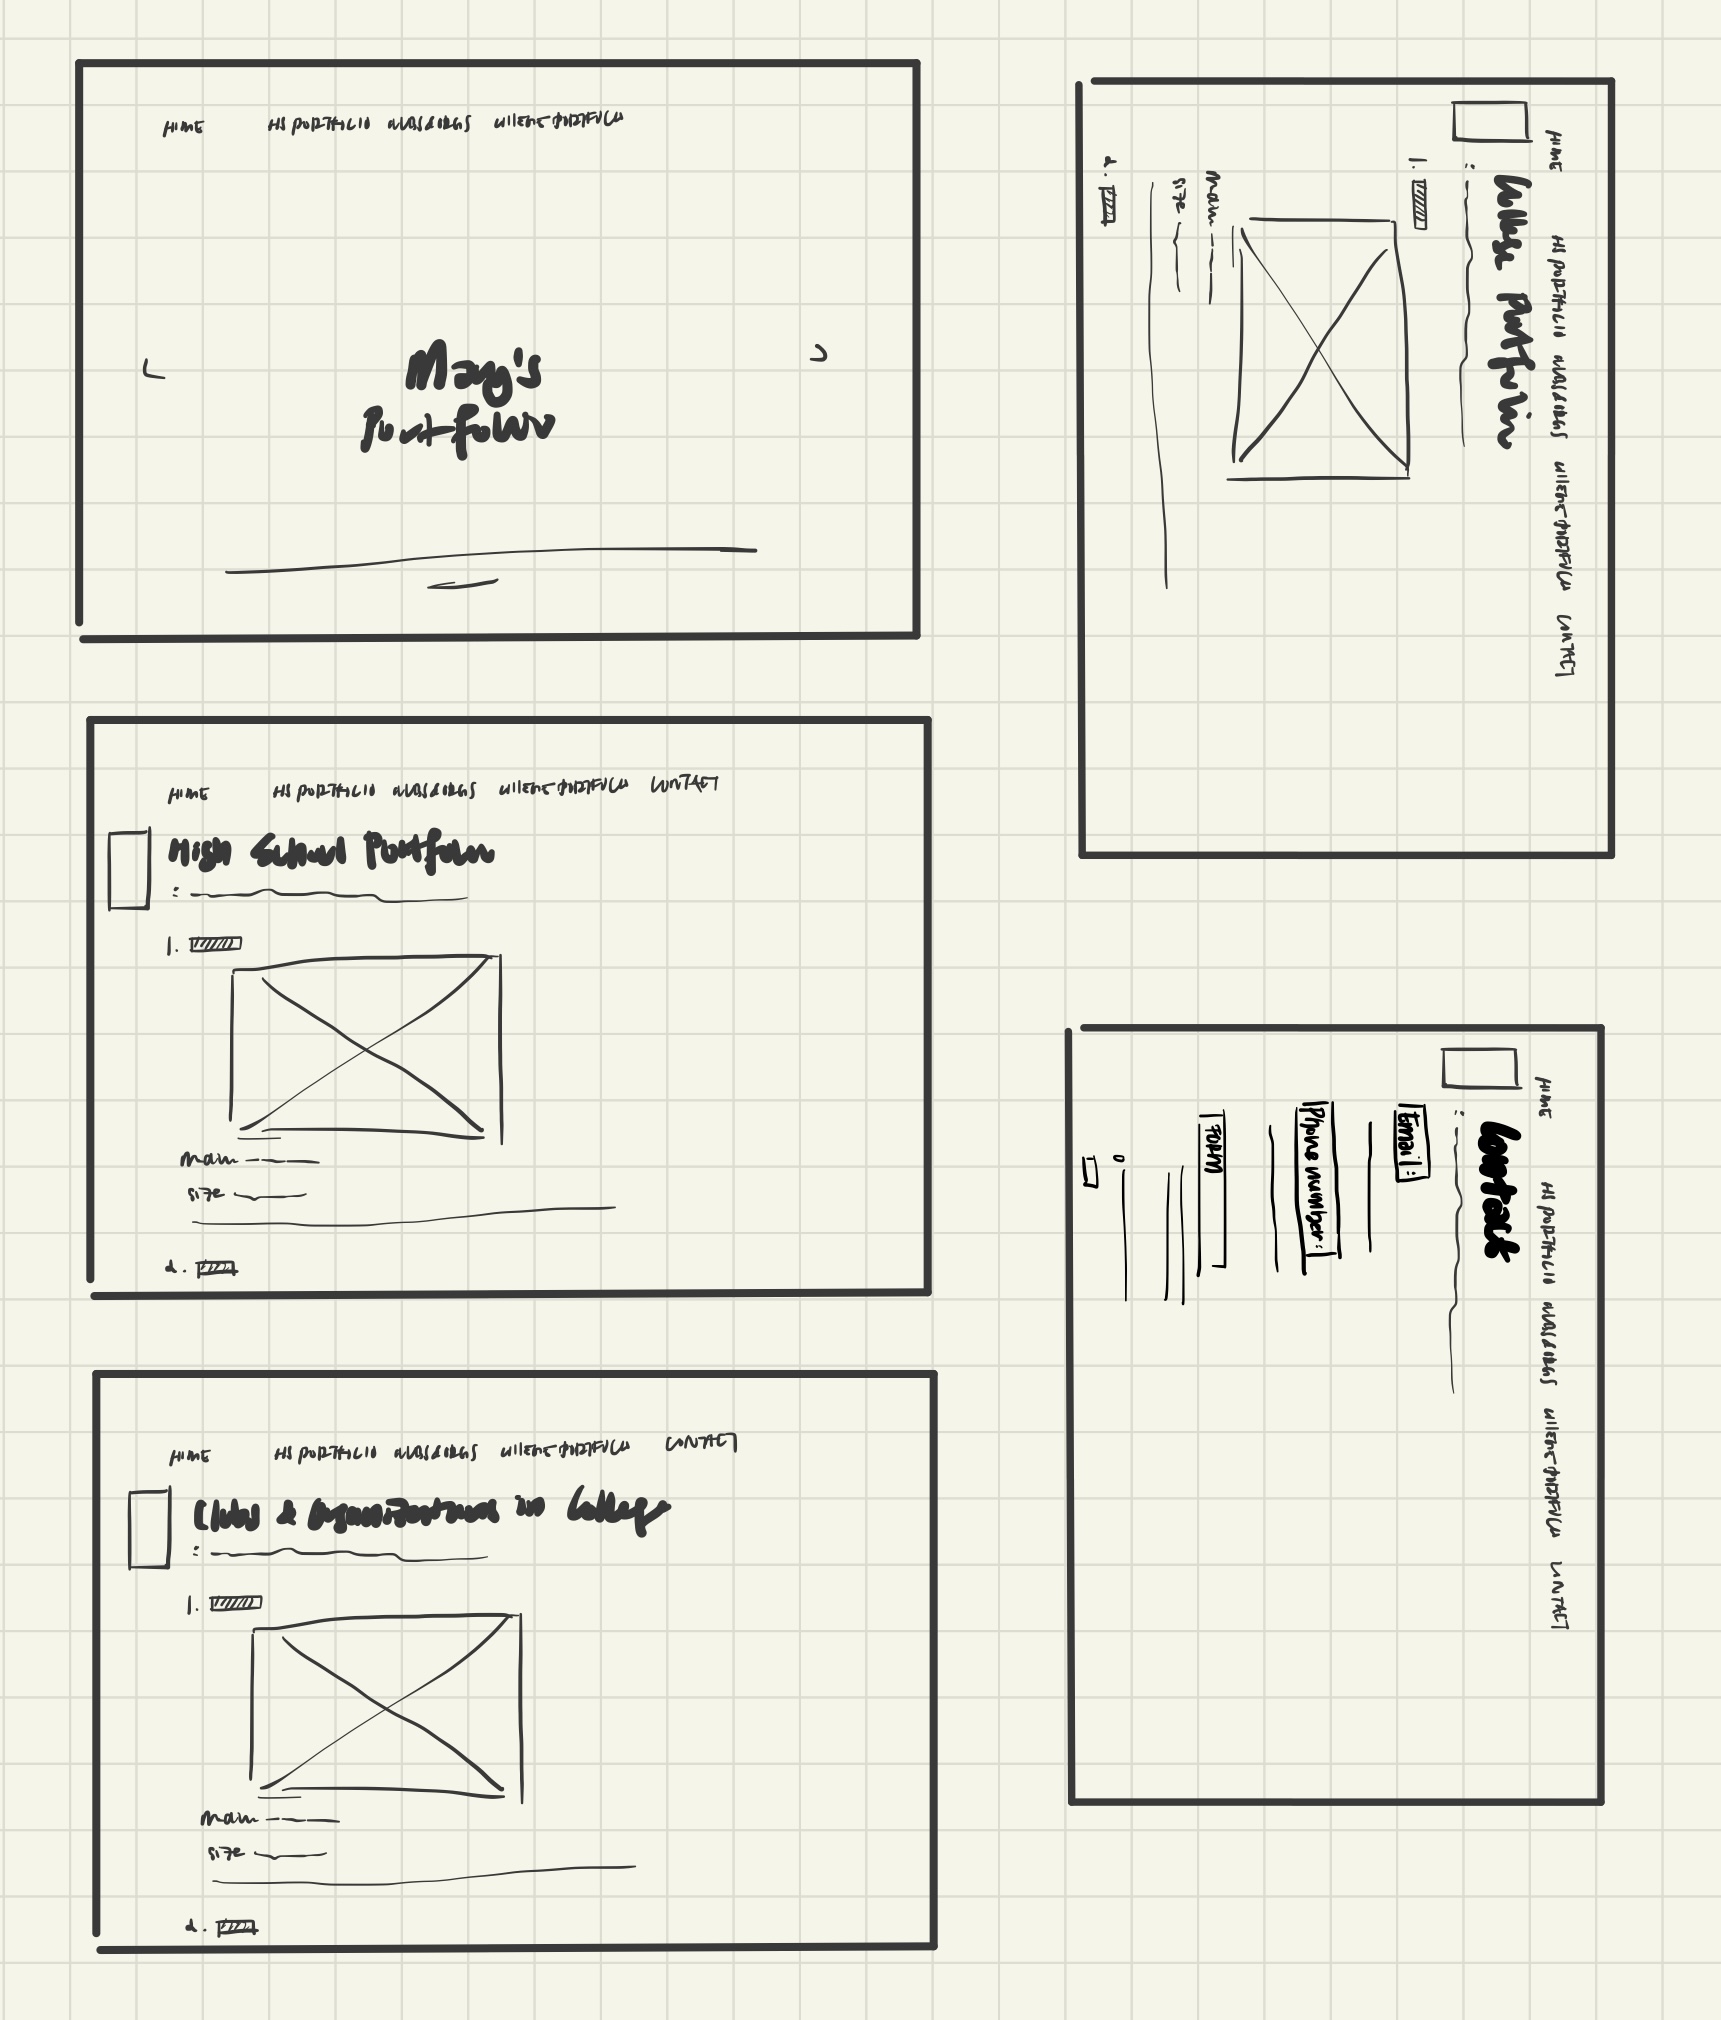 HOME HS PORTFOLIO CLUBS & ORGS COLLEGE PORTFOLIO
Mary's
Portfolio
HOME HS PORTFOLIO CLUBS & ORGS COLLEGE PORTFOLIO CONTACT
High School Portfolio
:
1.
main
size
2.
HOME HS PORTFOLIO CLUBS & ORGS COLLEGE PORTFOLIO CONTACT
Clubs & Organizations in College
:
1.
main
size
2.
HOME HS PORTFOLIO CLUBS & ORGS COLLEGE PORTFOLIO CONTACT
College Portfolio
:
1.
main
size
2.
HOME HS PORTFOLIO CLUBS & ORGS COLLEGE PORTFOLIO CONTACT
Contact
:
Email:
Phone number:
FORM